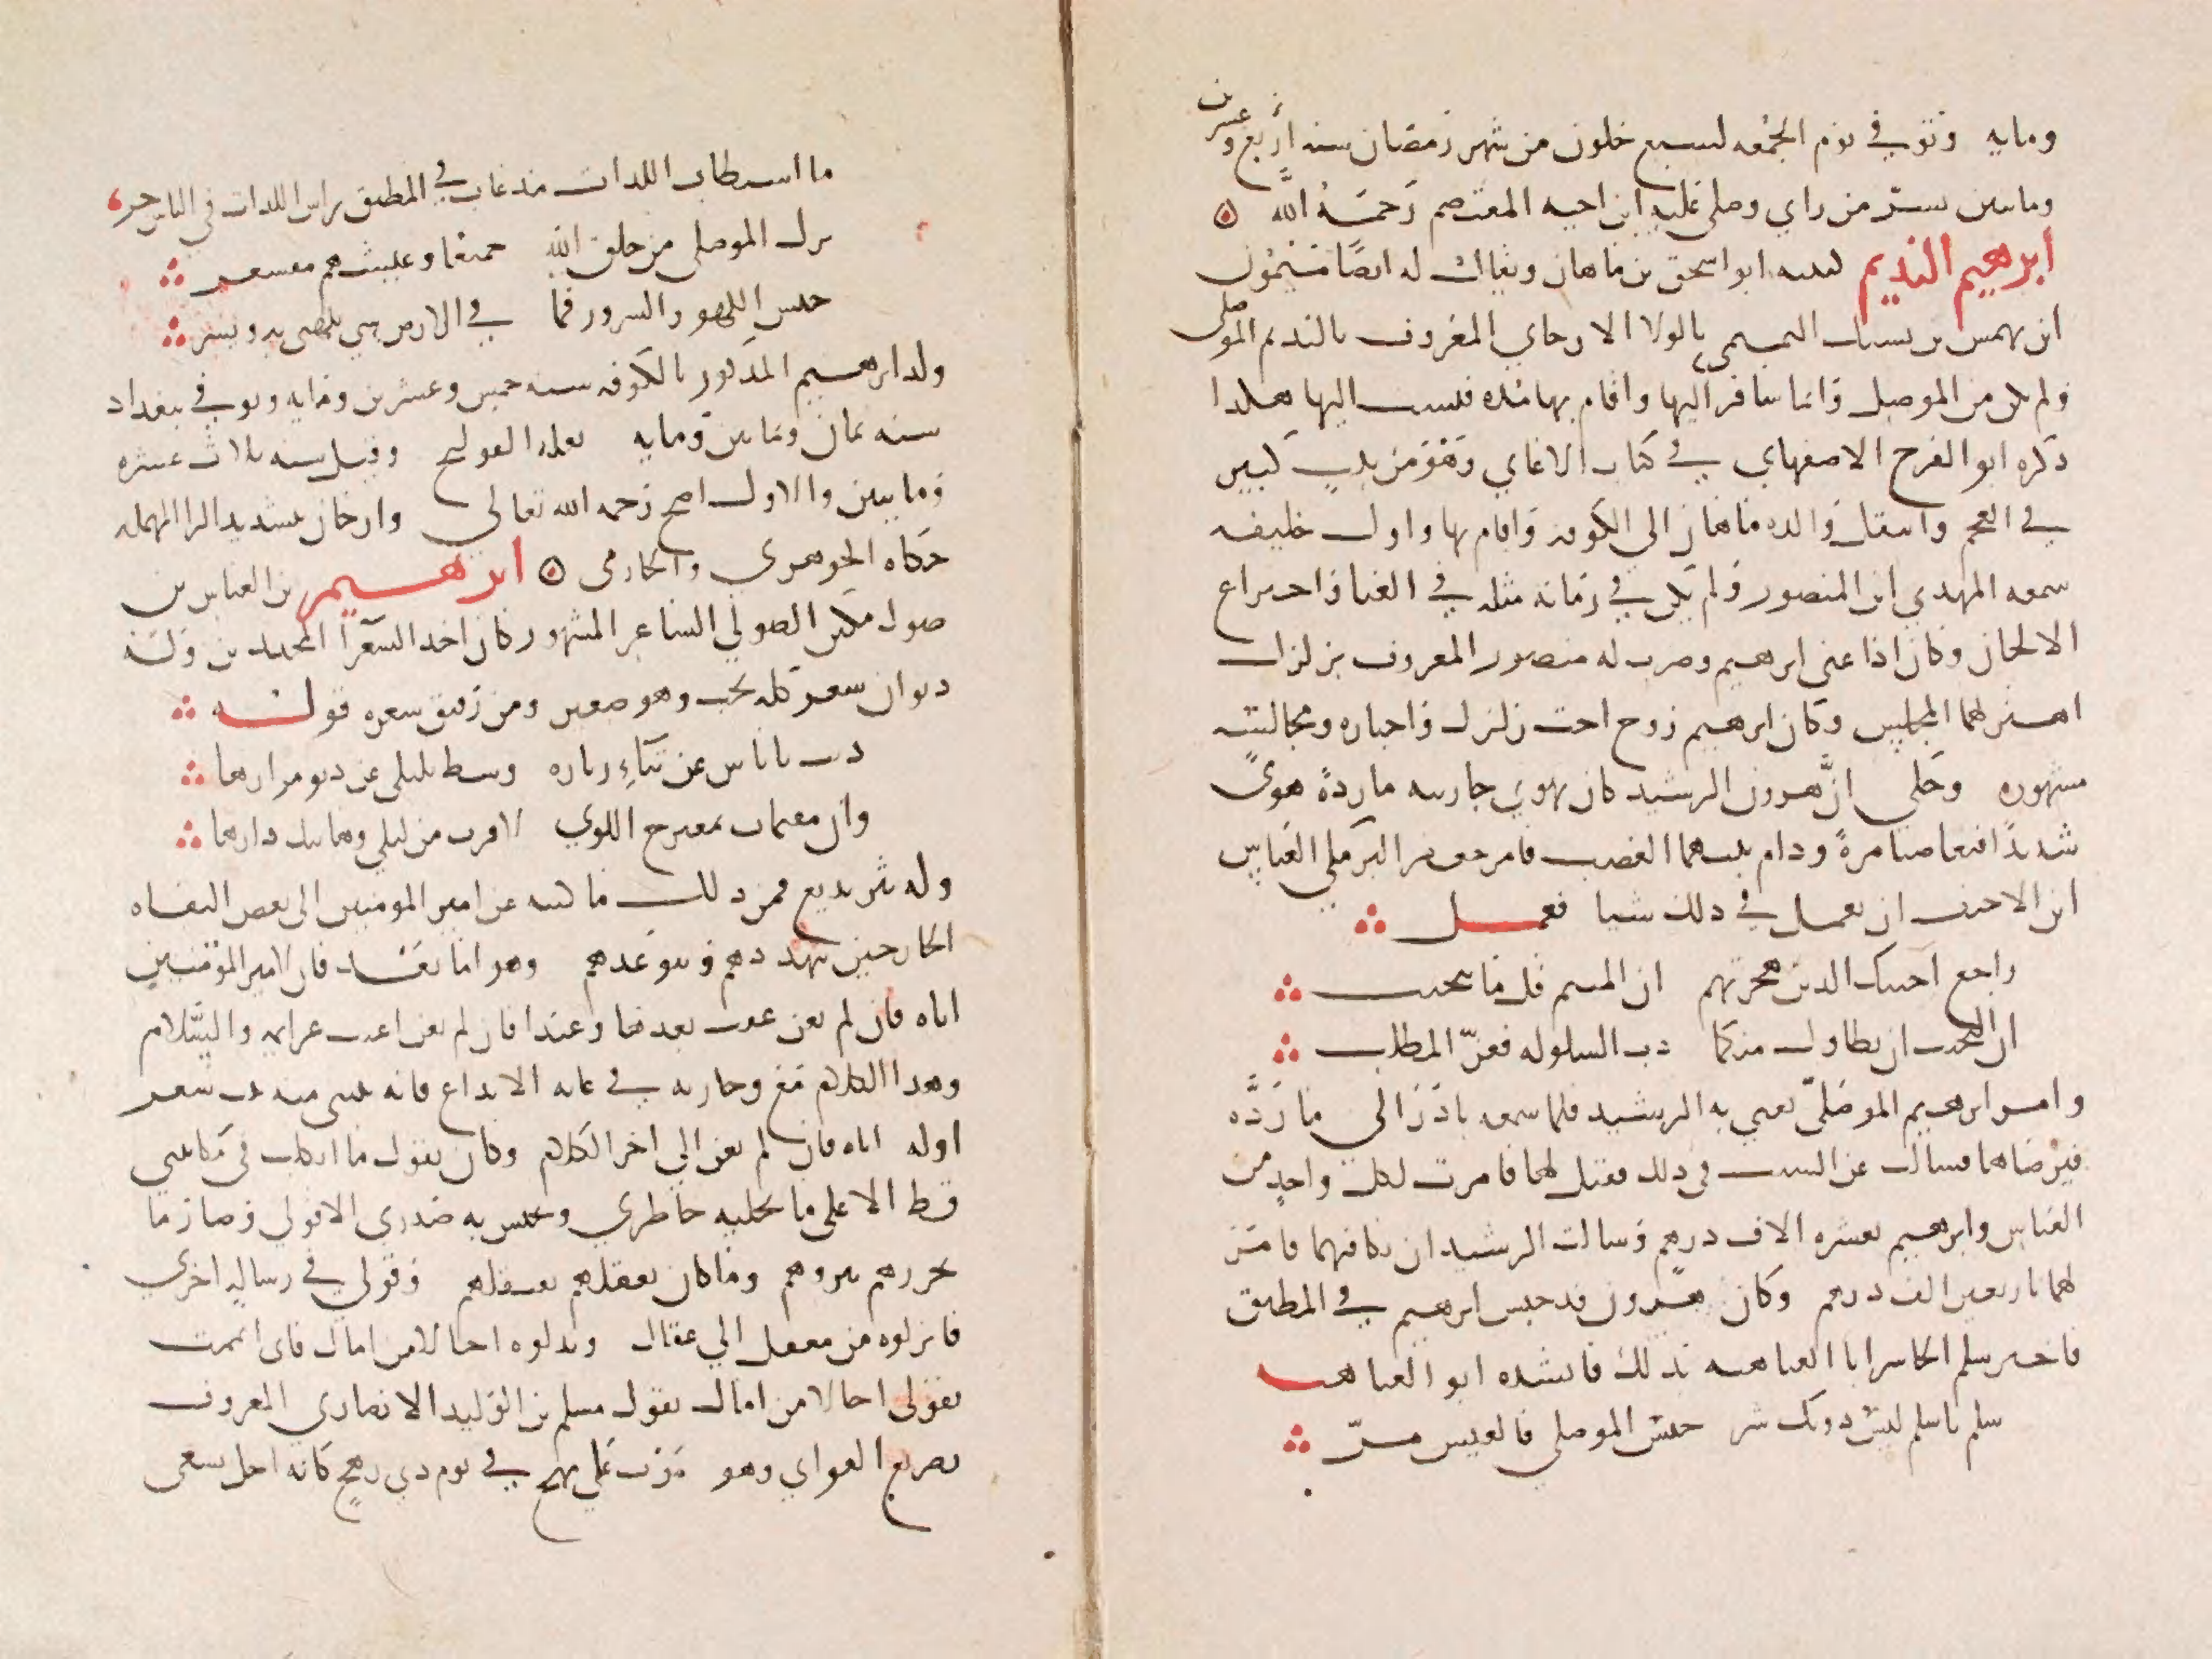 ومايه وتوفي يوم الجمعه لسبع خلون من شهر رمضان سنه اربع وعشرين
ومايتين بسر من راي وصلى عليه ابن اخيه المعتصم رحمه الله
ابرهيم النديم كنيته ابو اسحق بن ماهان ويقال له ايضا ميمون
ابن بهمن بن نسك التميمي بالولا الارجاني المعروف بالنديم الموصلي
ولم يكن من الموصل وانما سافر اليها واقام بها مده فنسب اليها هكدا
ذكره ابو الفرج الاصفهاني في كتاب الاغاني وهو من بيت كبير
في العجم وانتقل والده ماهان الى الكوفه واقام بها واول خليفه
سمعه المهدي ابن المنصور ولم يكن في زمانه مثله في الغنا واختراع
الالحان وكان اذا غنى ابرهيم وضرب له منصور المعروف بزلزل
اهتز لهما المجلس وكان ابرهيم زوج اخت زلزل واخباره ومجالسته
مشهوره وحكي ان هرون الرشيد كان يهوي جاريته ماردة هوى
شديدا فتغاضبا مرة ودام بينهما الغضب فامر جعفر البرمكي العباس
ابن الاحنف ان يعمل في ذلك شيا فعمل
راجع احبتك الدين هجرتهم ان المتيم قل ما يتجنب
ان التجنب ان تطاول منكما دب السلو له فعز المطلب
وامر ابرهيم الموصلي يغني به الرشيد فلما سمعه بادر الى ماردة
فترضاها فسالت عن السبب في ذلك فقيل لها فامرت لكل واحد من
العباس وابرهيم بعشره الاف درهم وسالت الرشيد ان يكافيهما فامر
لهما باربعين الف درهم وكان هرون قد حبس ابرهيم في المطبق
فاخبر سلم الخاسر ابا العتاهيه بذلك فانشده ابو العتاهيه
سلم ياسلم ليس دونك سر حبس الموصلي فالعيش مر
ما استطاب اللدات مذ غاب في المطبق راس اللدات في الناس حر
ترك الموصلي من خلق الله جميعا وعيشهم مقشعر
حبس اللهو والسرور فما في الارض شي يلهى به ويسر
ولد ابرهيم المذكور بالكوفه سنه خمس وعشرين ومايه وتوفي ببغداد
سنه ثمان وثمانين ومايه بعله القولنج وقيل سنه ثلاث عشره
ومايتين والاول اصح رحمه الله تعالى وارجان بتشديد الرا المهمله
حكاه الجوهري والحازمى ابرهيم بن العباس بن
صول تكين الصولي الشاعر المشهور كان احد الشعرا المجيدين وله
ديوان شعر كله نخب وهو صغير ومن رقيق شعره قوله
دنت باناس عن تناء زياره وشط بليلى عن دنو مزارها
وان مقيمات بمنعرج اللوي لاقرب من ليلي وهاتيك دارها
وله نثر بديع فمن ذلك ما كتبه عن امير المومنين الى بعض البغاه
الخارجين يتهددهم ويتوعدهم وهو اما بعد فان لامير المومنين
اناه فان لم تغن عقب بعدها وعيدا فان لم يغن اغنت عزايمه والسلام
وهدا الكلام مع وجازته في غايه الابداع فانه ينشى منه بيت شعر
اوله اناه فان لم تغن الي اخر الكلام وكان يقول ما اتكلت في مكاتبتي
قط الا على ما يجلبه خاطري ويجيش به صدري الا قولي وصار ما
يحرزهم يبرزهم وما كان يعقلهم يعتقلهم وقولي في رسالة اخري
فانزلوه من معقل الي عقال وبدلوه اجالا من امال فاني الممت
بقولي اجالا من امال بقول مسلم بن الوليد الانصاري المعروف
بصريع الغواني وهو موف على مهج في يوم ذي رهج كانه اجل يسعى